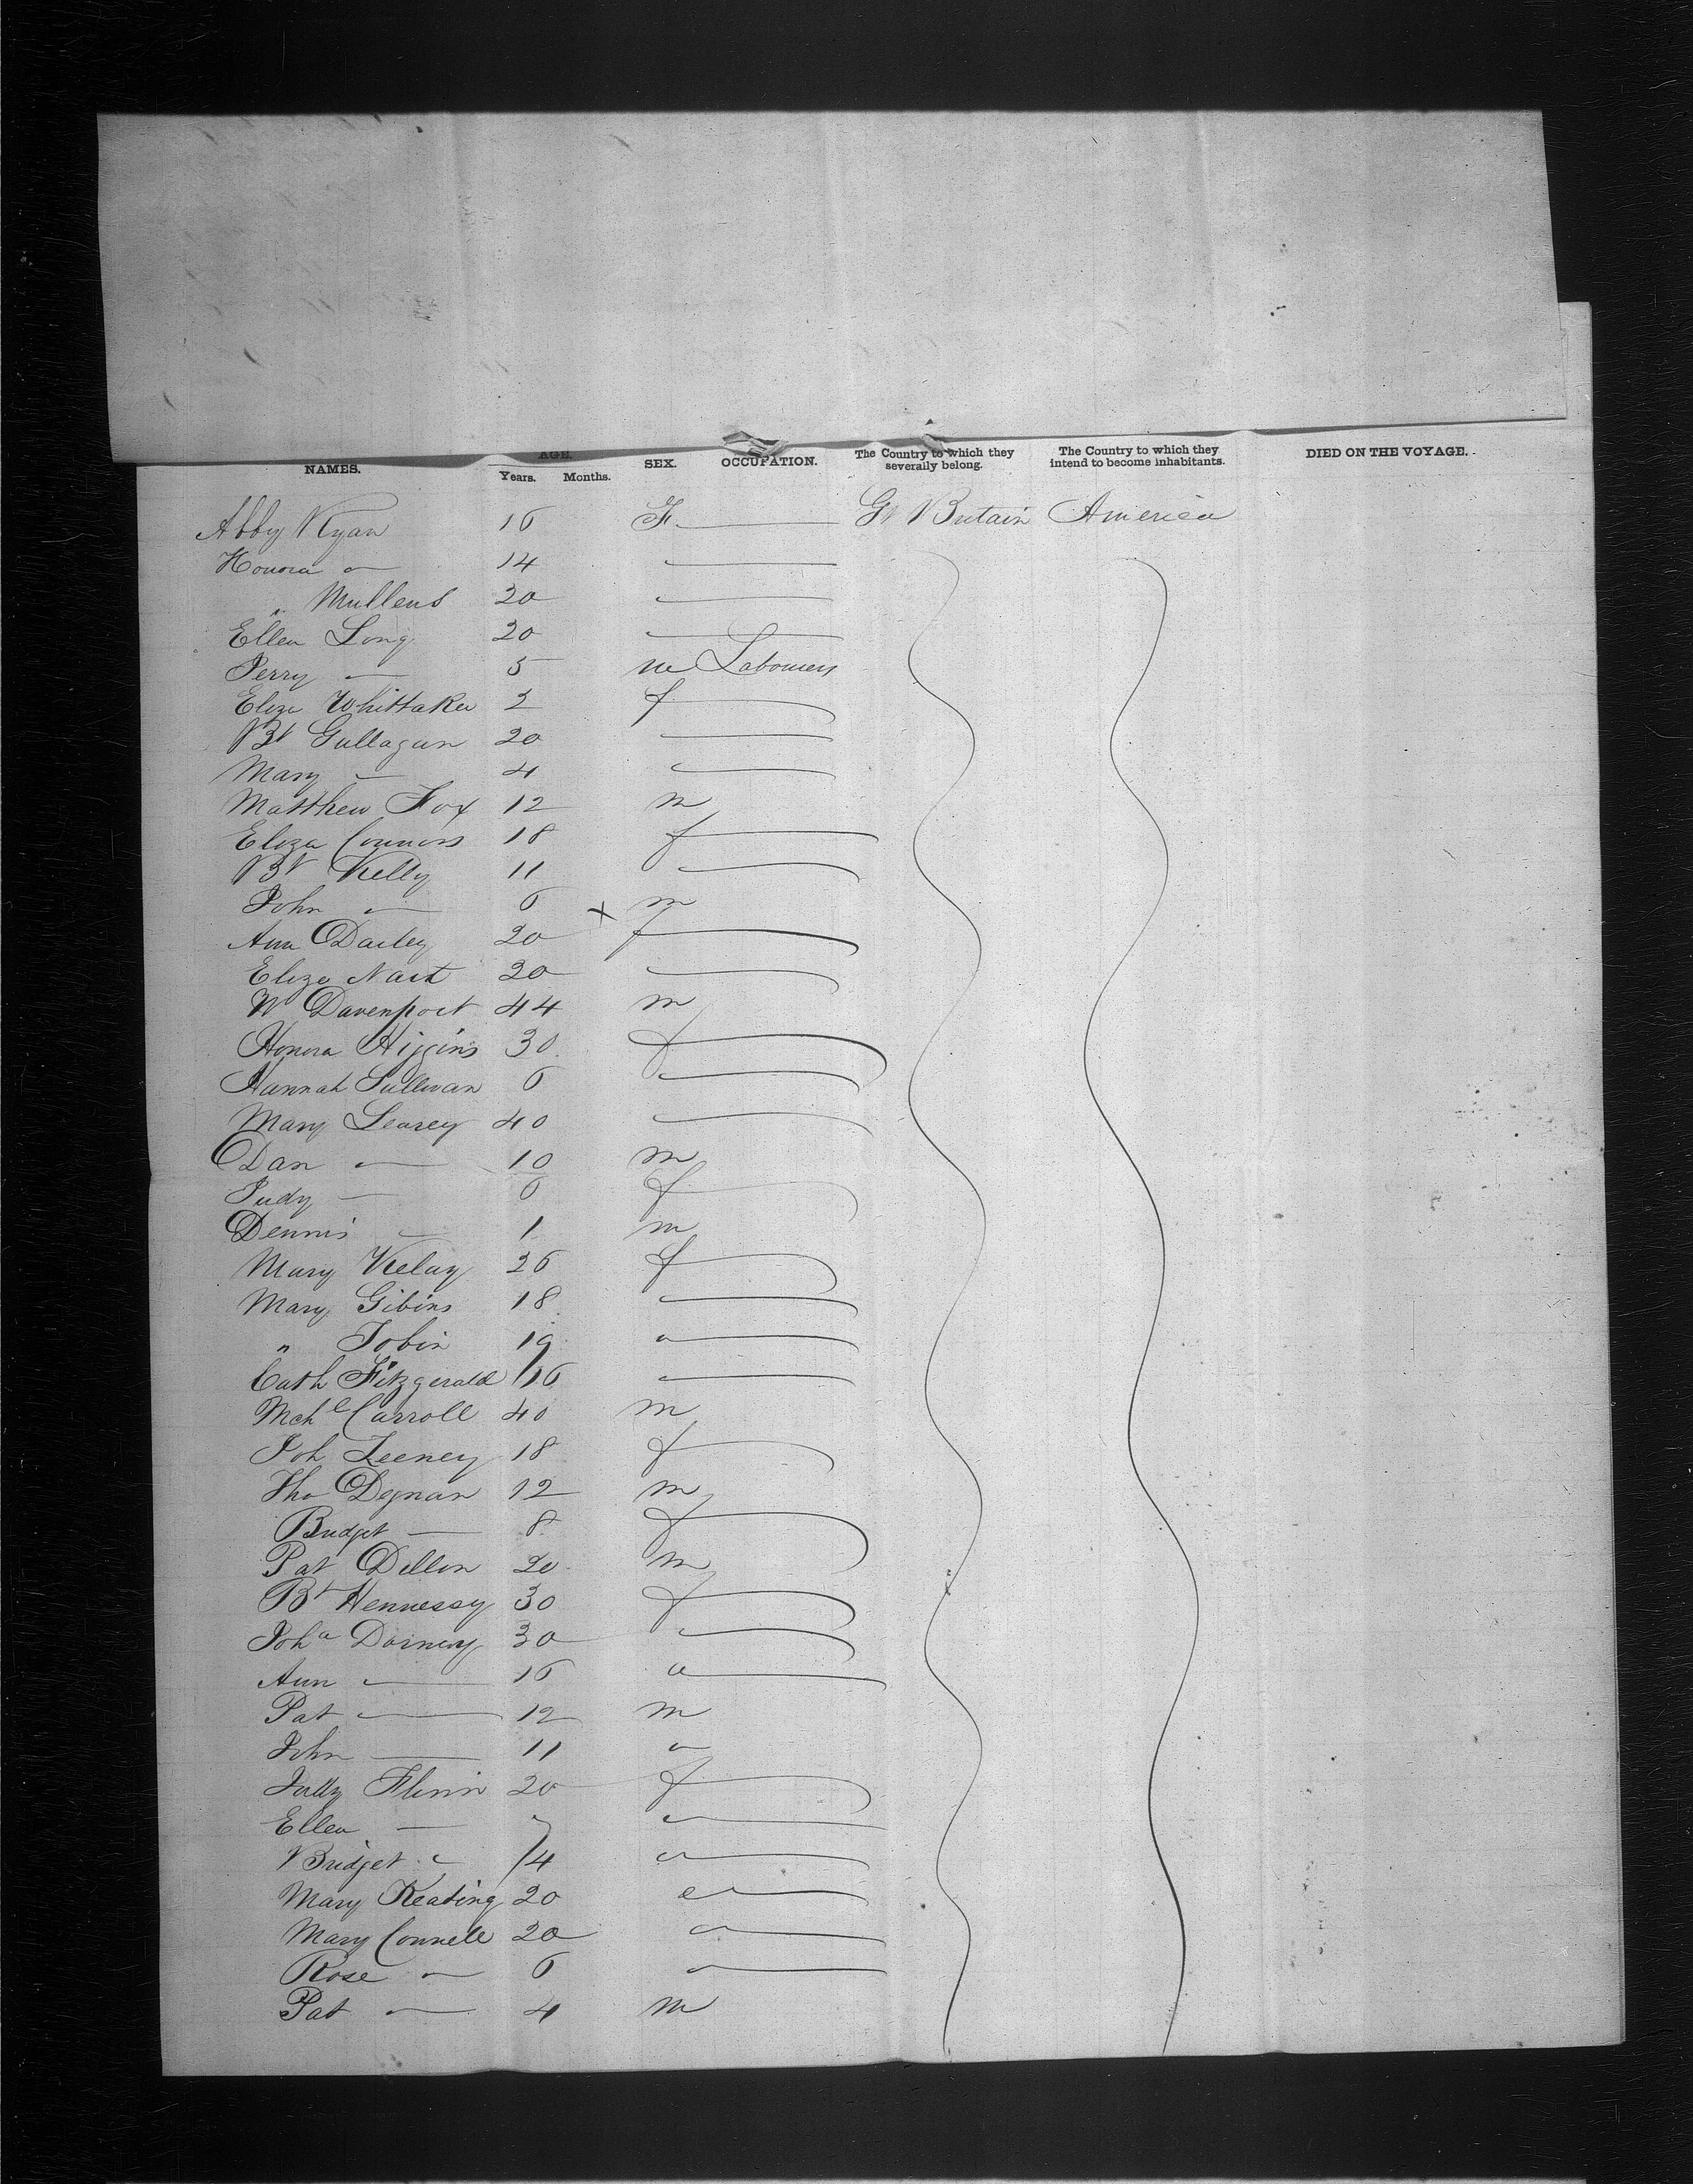 NAMES. AGE. Years. Months. SEX. OCCUPATION. The Country to which they severally belong. The Country to which they intend to become inhabitants. DIED ON THE VOYAGE.
Abby Ryan 16 F Gt Britain America
Honora " 14
" Mullens 20
Ellen Long 20
Jerry — 5 m Labourers
Eliza Whittaker 2 f
Bt Gallagan 20
Mary — 4
Matthew Fox 12 m
Eliza Connors 18 f
Bt Kelly 11
John — 6 m
Ann Dailey 20 x f
Eliza 20
W Davenport 44 m
Honora Higgins 30 f
Hannah Sullivan 6
Mary Learey 40
Dan — 10 m
Judy — 6 f
Dennis — 1 m
Mary Kelay 26 f
Mary Gibins 18
" Tobin 19
Cath Fitzgerald 16
Mchl Carroll 40 m
Joh Feeney 18 f
Tho Degnan 12 m
Bridget — 8 f
Pat Dillon 20 m
Bt Hennessy 30 f
Joha Dorney 30
Ann — 16
Pat — 12 m
John — 11
Judy Flinn 20 f
Ellen — 7
Bridget " 4
Mary Keating 20
Mary Connell 20
Rose — 6
Pat — 4 m